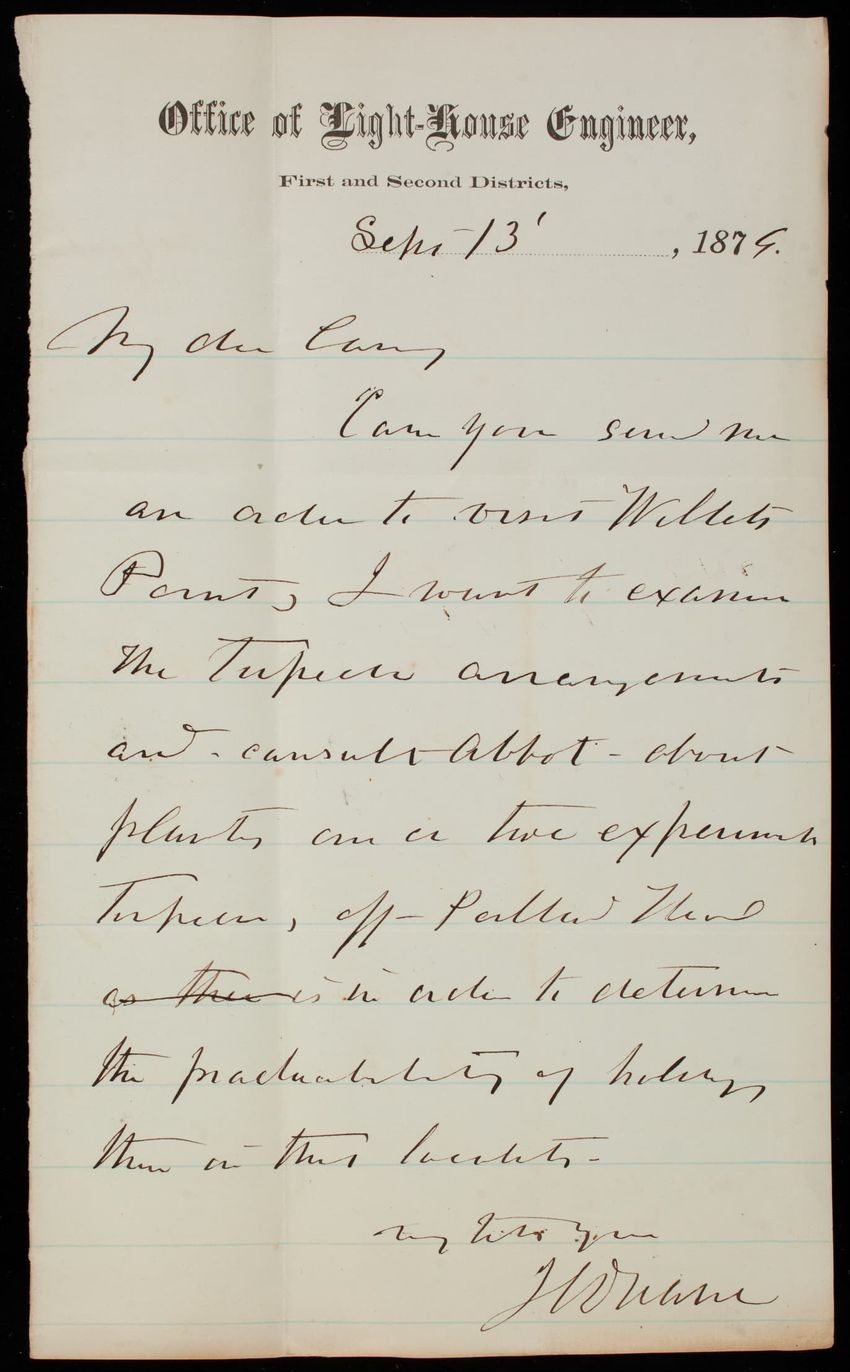 Office of Light-House Engineer,
First and Second Districts,
Sept 13', 1874.
My dear Casey
Can you send me
an order to visit Willets
Point, I want to examine
the Torpedo arrangements
and - consult Abbot - about
planting one or two experiments
Torpedoes, off - Portland Head
as there is in order to determine
the practicability of holding
them in that locality -
Very truly yours
J C Duane